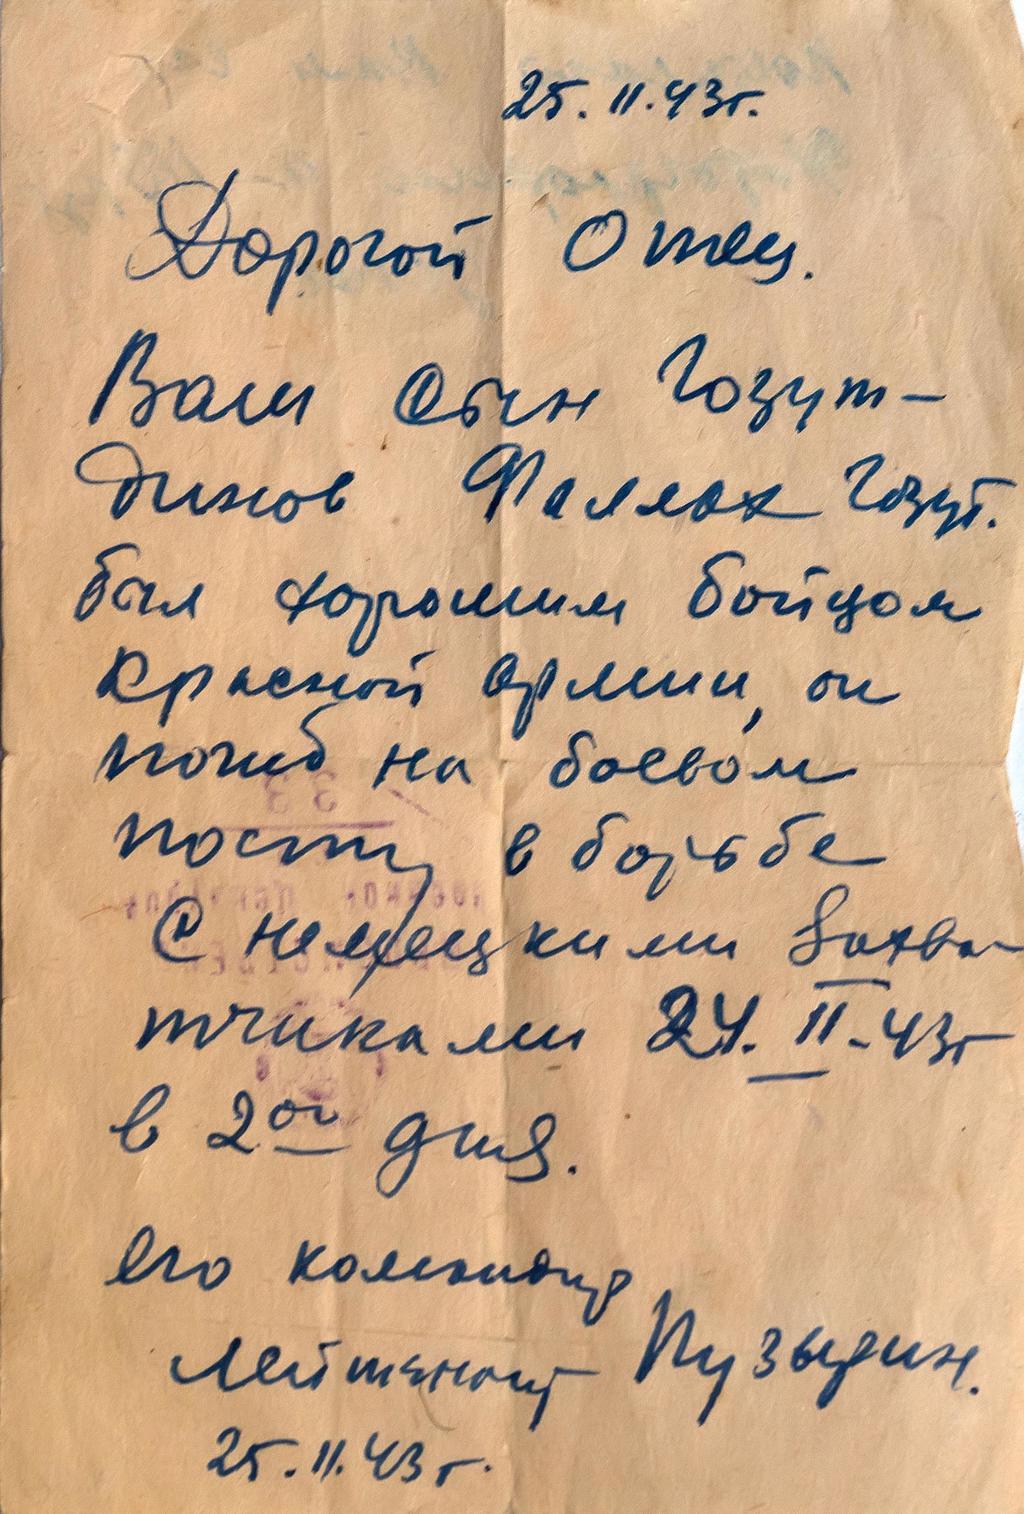 25.II.43г.
Дорогой Отец.
Ваш Сын Гозут-
динов Фаллах Гозут.
был хорошим бойцом
Красной армии, он
погиб на боевом
посту в борьбе
с немецкими захва-
тчиками 24.II.43г
в 2оо дня.
его командир
лейтенант Пузырин.
25.II.43г.